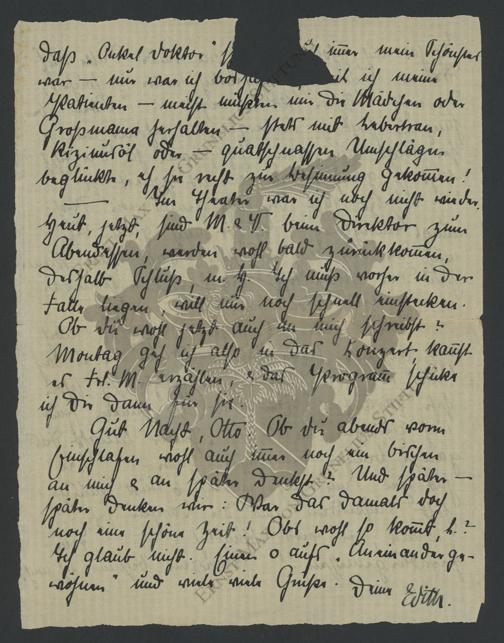 daß „Onkel Doktor" immer mein Schönstes
war – nur war ich boshaft, weil ich meine
Patienten – meist mußten mir die Mädchen oder
Großmama herhalten – stets mit Lebertran,
Rizinusöl oder – quatschnassen Umschlägen
beglückte, eh sie recht zur Besinnung gekommen!
— Im Theater war ich noch nicht wieder.
Heut, jetzt, sind M. & V. beim Direktor zum
Abendessen, werden wohl bald zurückkommen,
deshalb Schluß, m. L. Ich muß vorher in der
Falle liegen, will nur noch schnell einstecken.
Ob du wohl jetzt auch an mich schreibst?
Montag geh ich also in das Konzert kannst
es Frl. M. erzählen, & das Program schicke
ich Dir dann für sie.
Gut Nacht, Otto. Ob du abends vorm
Einschlafen wohl auch immer noch ein bischen
an mich & an später denkst? Und später –
später denken wir: War das damals doch
noch eine schöne Zeit! Obs wohl so kommt, L.?
Ich glaub nicht. Einen o aufs „Aneinanderge-
wöhnen" und viele viele Grüße. Deine Edith.
ERNST MAX VON GRUNELIUS STIFTUNG